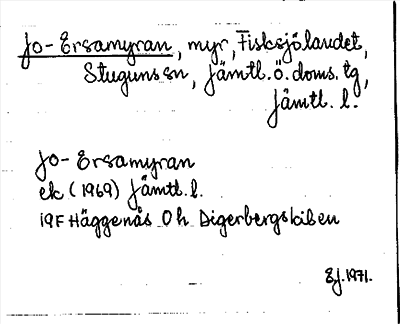 Jo-Ersamyran, myr, Fisksjölandet,
Stuguns sn, Jämtl. ö. doms. tg,
Jämtl. l.
Jo-Ersamyran
ek (1969) Jämtl. l.
19F Häggenås 0 h Digerbergskilen
EJ. 1971.